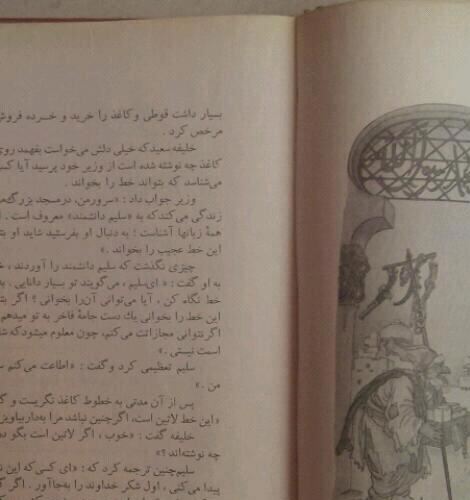 بسیار داشت قوطی و کاغذ را خرید و خرده فروش
مرخص کرد .
خلیفه سعید که خیلی دلش می‌خواست بفهمد روی
کاغذ چه نوشته شده است از وزیر خود پرسید آیا
می‌شناسد که بتواند خط را بخواند .
وزیر جواب داد : «سرورمن، درمسجد بزرگ
زندگی می‌کند که به «سلیم دانشمند» معروف است .
همهٔ زبانها آشناست ؛ به دنبال او بفرستید شاید او
این خط عجیب را بخواند .»
چیزی نگذشت که سلیم دانشمند را آوردند ،
به او گفت : «ای‌سلیم ، می‌گویند تو بسیار دانایی .
خط نگاه کن ، آیا می‌توانی آن‌را بخوانی ؟ اگر
این خط را بخوانی یك دست جامهٔ فاخر به تو میدهم
اگرنتوانی مجازاتت می‌کنم، چون معلوم میشودکه
اسمت نیستی .»
سلیم تعظیمی کرد وگفت : «اطاعت می‌کنم
من .»
پس از آن مدتی به خطوط کاغذ نگریست و
«این خط لاتین است، اگرچنین نباشد مرا به‌دار بیاویز
خلیفه گفت : «خوب ، اگر لاتین است بگو
چه نوشته‌اند ؟»
سلیم‌چنین ترجمه کرد که : «ای کسی‌که این
پیدا می‌کنی ، اول شکر خداوند را به‌جاآور .